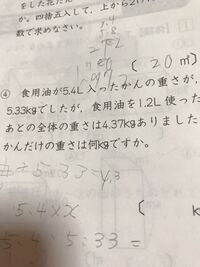 をした花だん
か。四捨五入して、上から2け
数で求めなさい。
5.4
5.8
〔20㎡〕
④ 食用油が5.4L入ったかんの重さが、
5.33kgでしたが、食用油を1.2L使った
あとの全体の重さは4.37kgありました
かんだけの重さは何kgですか。
5.33
4.3
5.4×x
〔 k
5.4:5.33=